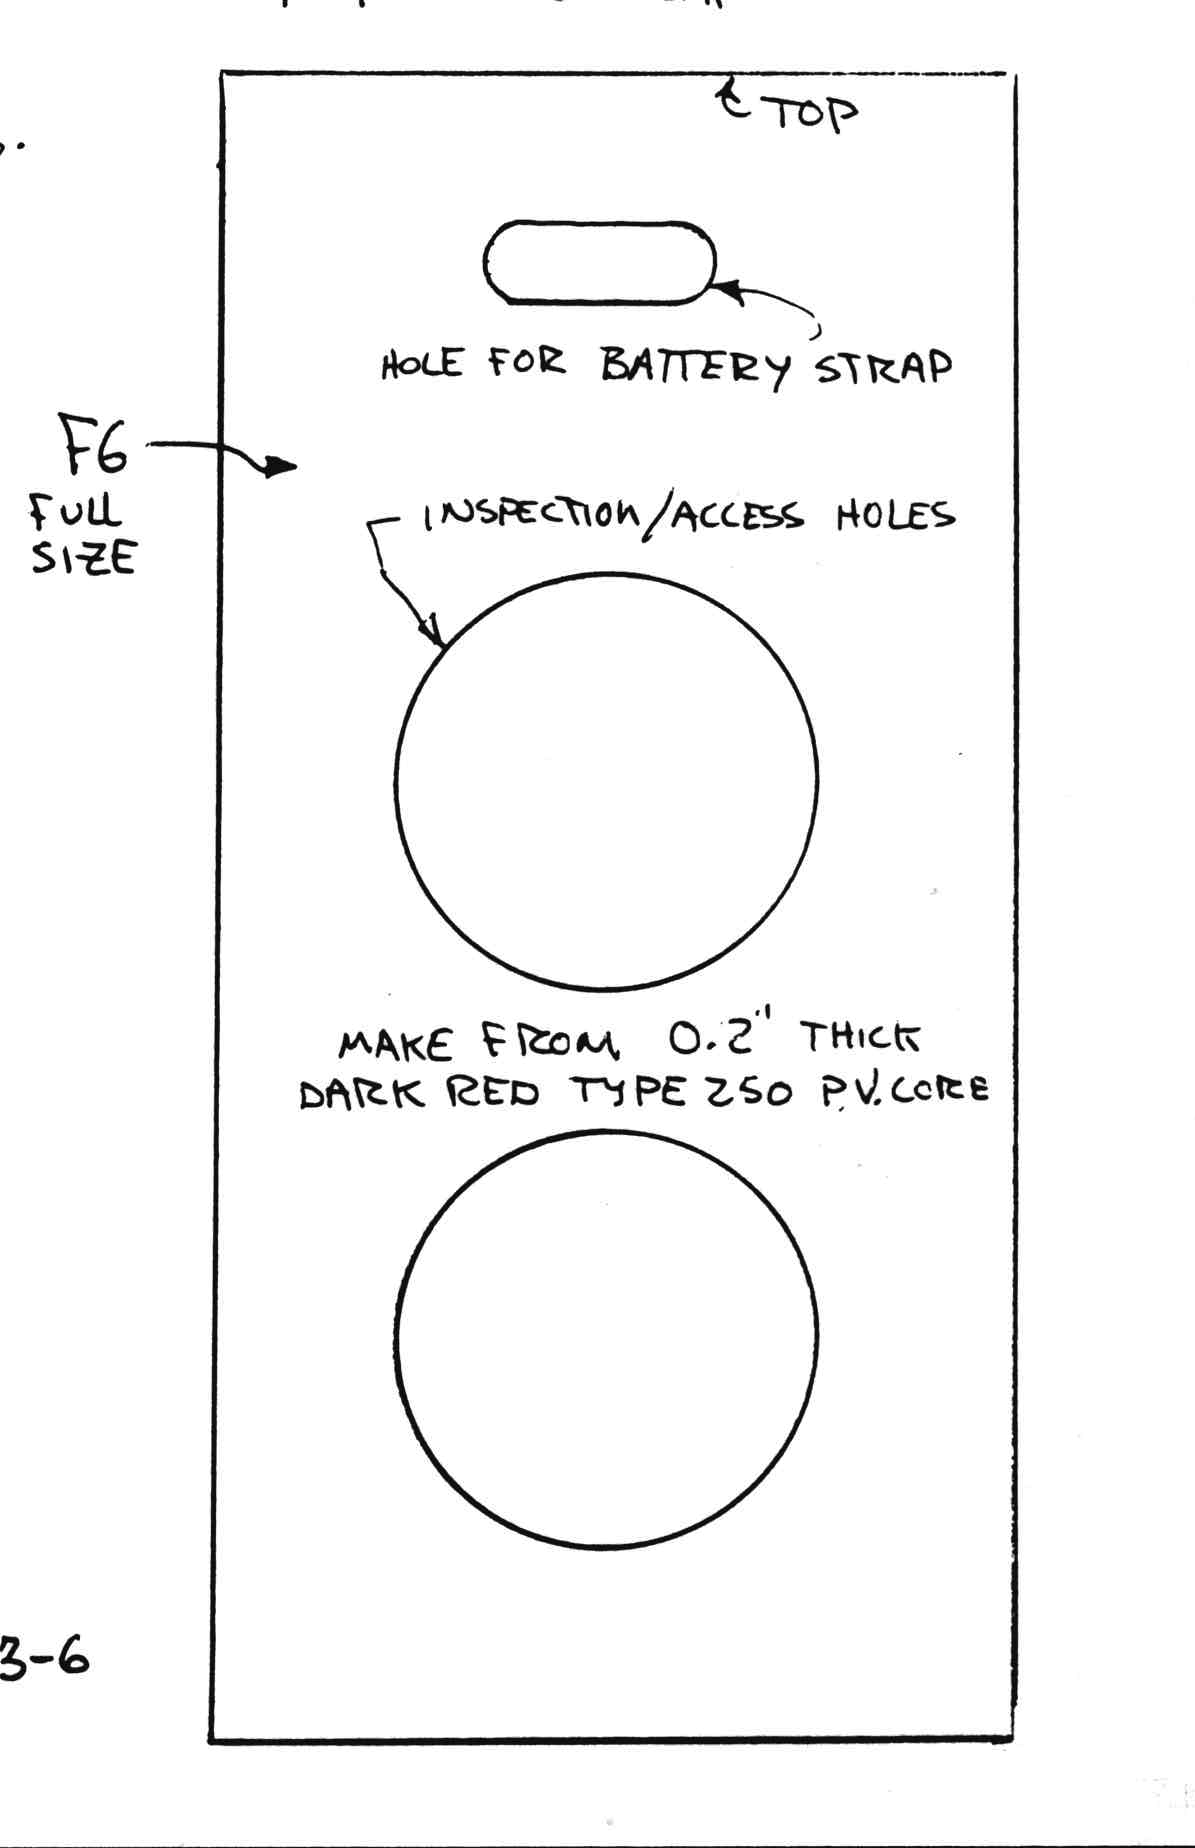 TOP
HOLE FOR BATTERY STRAP
F6
FULL
SIZE
INSPECTION/ACCESS HOLES
MAKE FROM 0.2" THICK
DARK RED TYPE 250 P.V. CORE
3-6